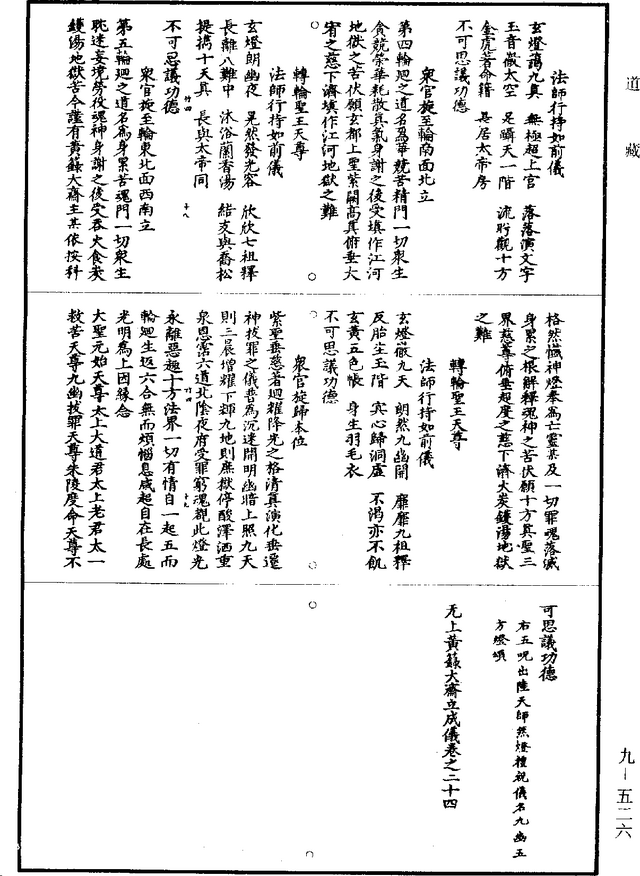 道藏
法師行持如前儀
玄燈蕩九真　無極超上宮　落落演文字
玉音徹太空　是躡天一階　流眄觀十方
金虎著命籍　是居太帝房
不可思議功德
衆官旋至輪南面北立
第四輪廻之道名為華競苦精門一切衆生
貪競榮華耗散真氣身謝之後受填作江河
地獄之苦伏願玄都上聖紫闕高真俯垂大
宥之慈下濟填作江河地獄之難
轉輪聖王天尊
法師行持如前儀
玄燈朗幽夜　晃然發光容　欣欣七祖釋
長離八難中　沐浴蘭香湯　結友與喬松
提携十天真　長與太帝同
不可思議功德
衆官旋至輪東北面西南立
第五輪廻之道名為身累苦魂門一切衆生
耽迷妄境勞役魂神身謝之後受吞火食炭
鑊湯地獄苦今謹有黃籙大齋主某依按科
格然懺神燈奉為亡靈某及一切罪魂落滅
身累之根解釋魂神之苦伏願十方真聖三
界慈尊俯垂超度之慈下濟火炭鑊湯地獄
之難
轉輪聖王天尊
法師行持如前儀
玄燈徹九天　朗然九幽開　靡靡九祖釋
反胎生玉階　冥心歸洞虛　不渴亦不飢
玄黃五色帳　身生羽毛衣
不可思議功德
衆官旋歸本位
紫聖垂慈著迴耀降光之格清真演化垂遷
神拔罪之儀普為沉迷開明幽暗上照九天
則三晨增耀下輝九地則庶獄停酸澤洒重
泉恩霑六道北陰夜府受罪窮魂觀此燈光
永離惡趣十方法界一切有情自一起五而
輪廻生返六合無而煩惱息咸超自在長處
光明為上因緣念
大聖元始天尊太上大道君太上老君太一
救苦天尊九幽拔罪天尊朱陵度命天尊不
可思議功德
右五呪出陸天師然燈禮祝儀名九幽五
方燈頌
无上黃籙大齋立成儀卷之二十四
九－五二六